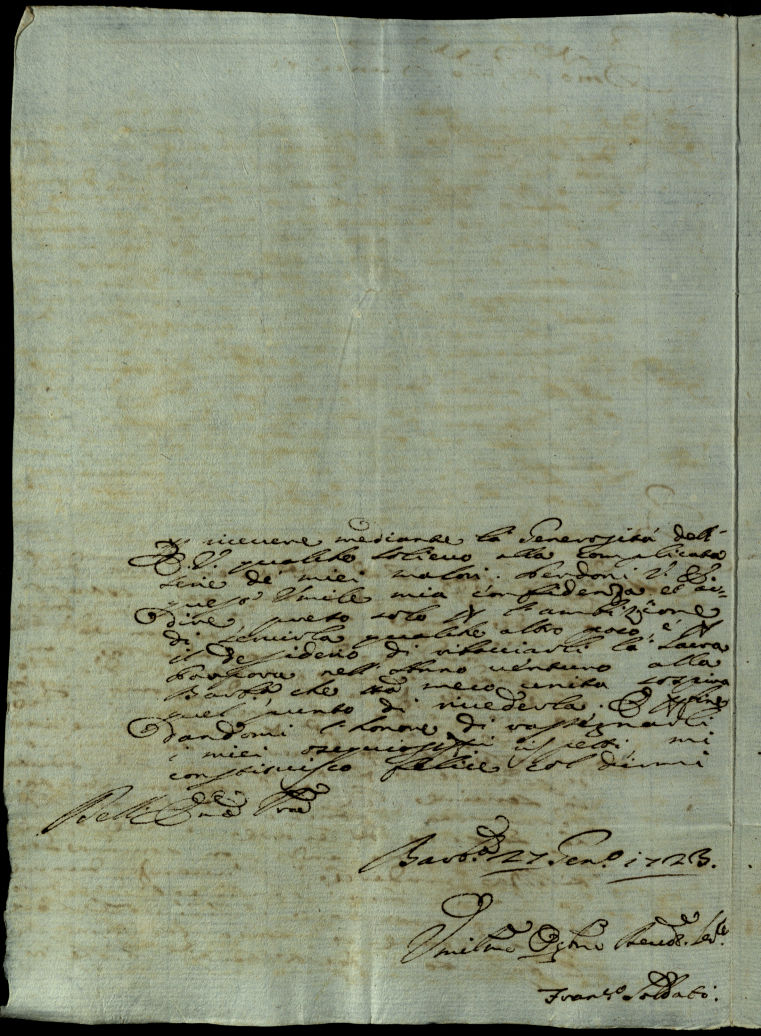 riceuere mediante la Generosità dell'
E. V. qualche solieuo alla complicata
serie de' miei malori. Perdoni V. E.
quest' Umile mia confidenza et ar-
dire, questo solo è l'ambizione
di seruirla qualche altro poco, è
il desiderio di rilasciarli la Sacra
nell'Anno uenturo alla
che stà meco unita sospira
quel punto di riuederla. E
dandomi l'honore di rassegnarli
i miei ossequiosissimi rispetti, mi
costituisco felice col dirmi
Dell' E.
27 Gen.º 1723.
Seru.
Fran.co Soldati.